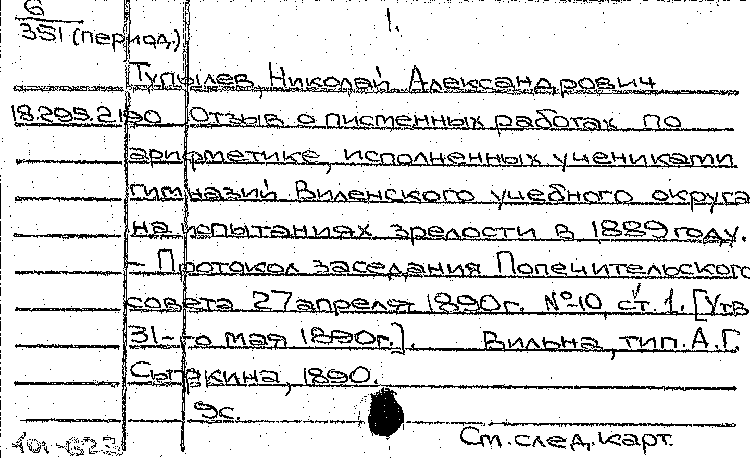 6
351 (период)
1.
Тупылев, Николай Александрович
18.295.2.190 Отзыв о писменных работах по
арифметике, исполненных учениками
гимназий Виленского учебного округа
на испытаниях зрелости в 1889 году.
- Протокол заседания Попечительского
совета 27 апреля 1890г. № 10, ст. 1. [Утв
31-го мая 1890г.]. Вильна, тип. А.Г.
Сыркина, 1890.
9с.
См. след. карт.